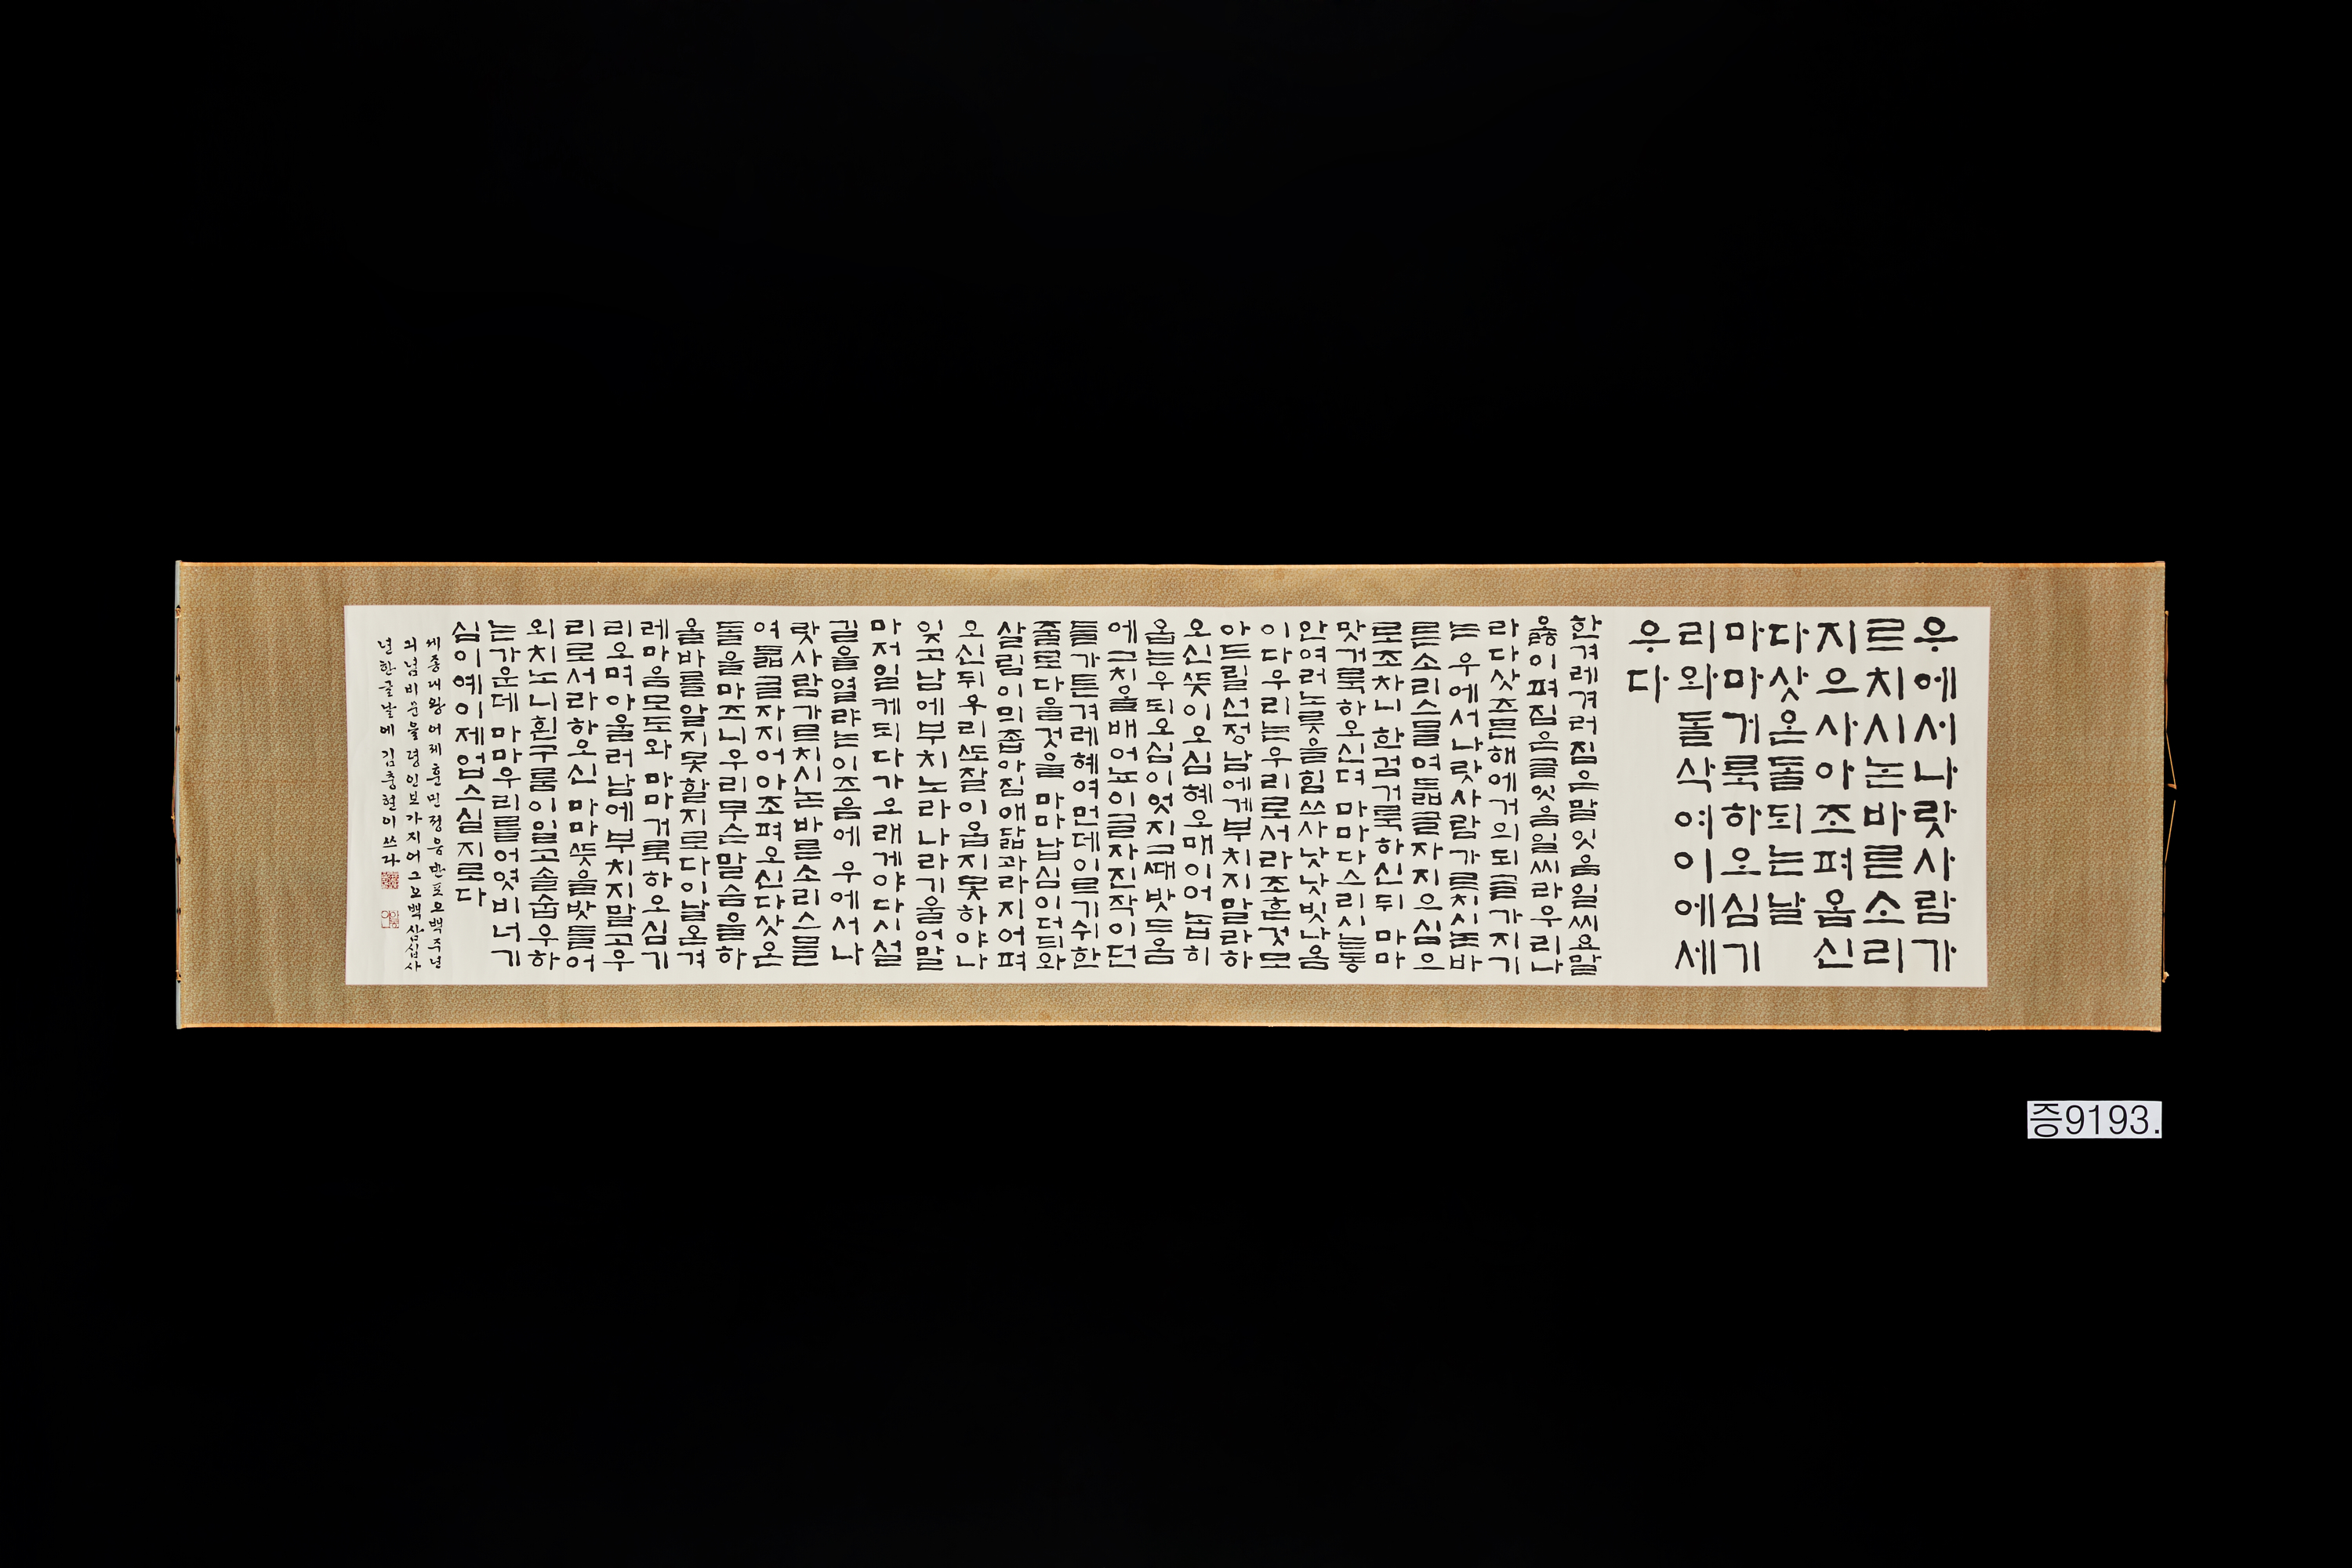 우에서나랏사람가
르치시논바른소리
지으사아조펴옵신
다삿온돌되는날
마마거룩하오심기
리와돌삭여이에세
우다
한겨레겨러짐은말잇음일씨요말
옳이펴짐은글잇음일씨라우리나
라다삿즈믄해에거의되글가지기
는 우에서나랏사람가르치시논바
른소리스믈여듧글자지으심으
로조차니 한검거룩하신뒤 마마
맛거룩하오신뎌 마마다스리신동
안여러노릇을힘쓰사낫낫빗나옴
이다우리는우리로서라조흔것모
아드릴선정남에게부치지말라하
오신뜻이오심혜오매이어놉히
옵는우되오심이엇지그때밧드옴
에그치올배어뇨이글자진작이던
들가튼겨레혜여먼데이르기쉬한
줄로다을것을 마마납심이더듸와
살림이믜좁아짐애닯과라지어펴
오신뒤우리또잘이옵지못하야나
잊고남에부치노라나라기울어말
마저일케되다가오래게야다시설
길을열랴는이즈음에 우에서나
랏사람가르치시논바른소리스믈
여듧글자지어아조펴오신다삿온
돌을마즈니우리무슨말슴을하
올바를알지못할지로다이날온겨
레마음모도와 마마거룩하오심기
리오며아울러남에부치지말고우
리로서라하오신 마마뜻을밧들어
외치노니흰구룸이일고솔숩우하
는가운데 마마우리를어엿비너기
심이예이제업스실지로다
세종대왕어제훈민정음반포오백주년
의념비문을뎡인보가지어그오백삼십사
년한글날에 김충현이쓰다
증9193.